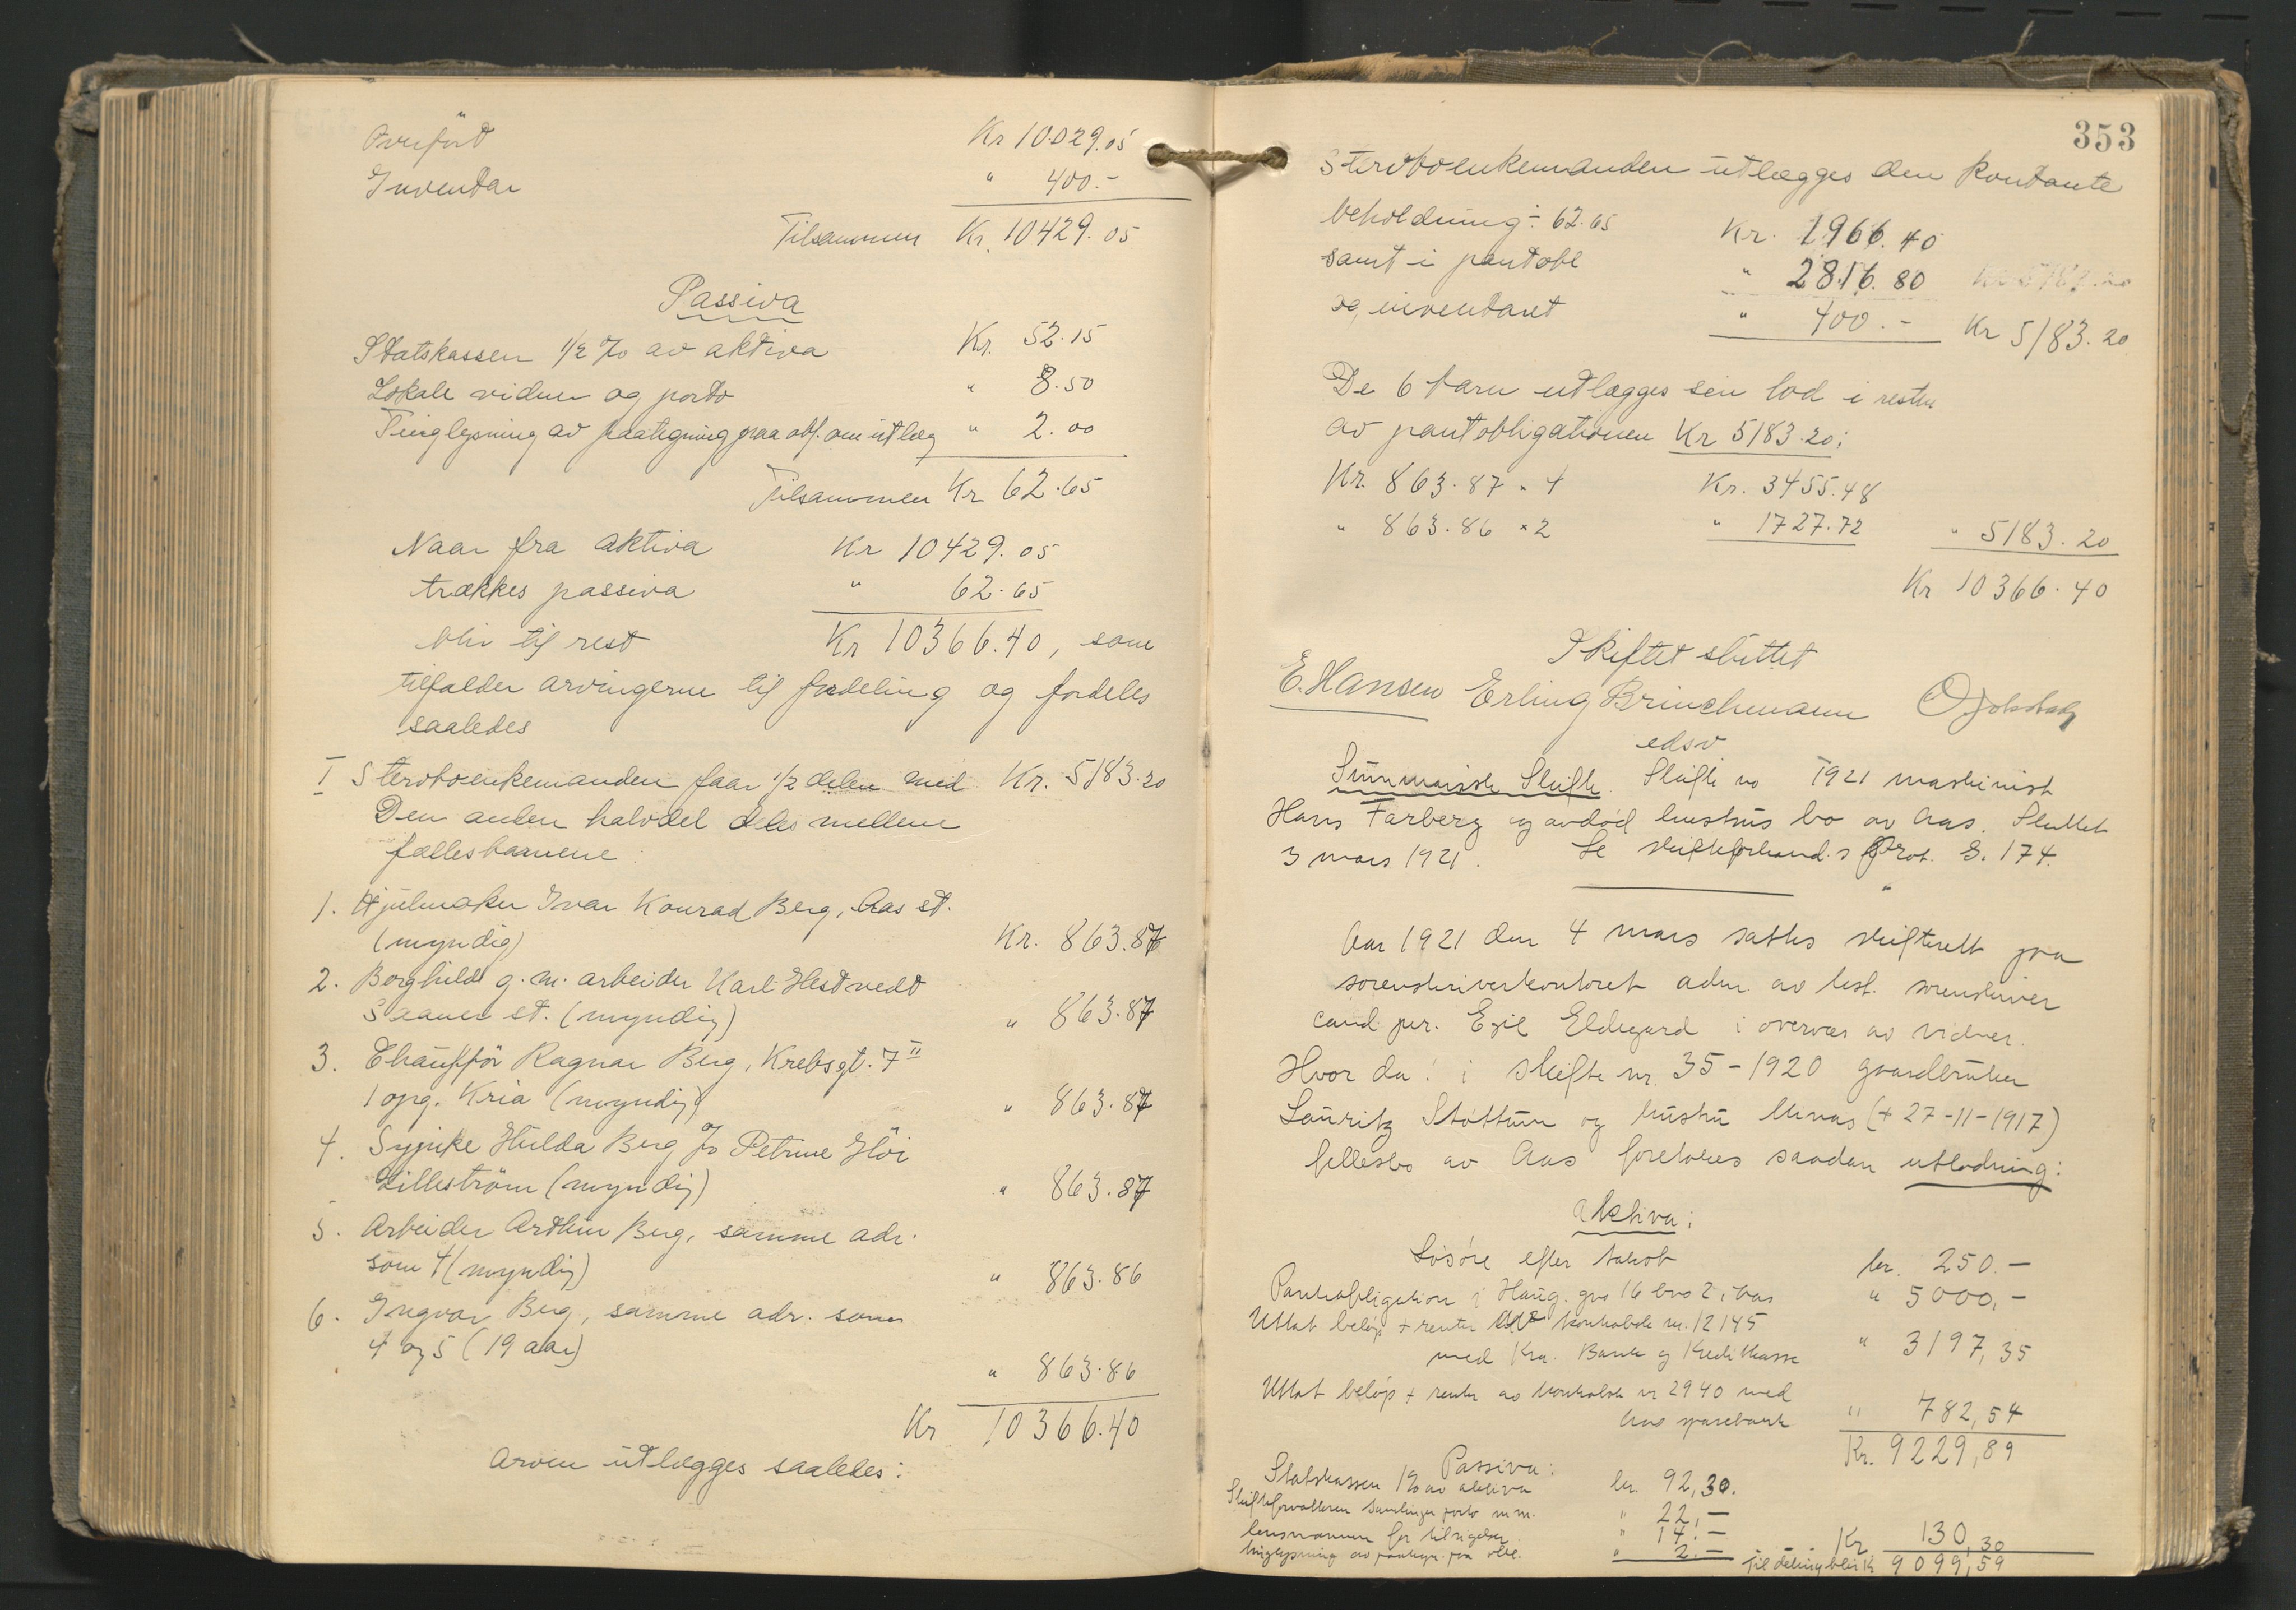 Overført Kr 10029.05
Inventar " 400.-
Tilsammen Kr. 10429.05
Passiva
Statskassen 1/2 % av aktiva Kr. 52.15
Lokale vidner og porto " 8.50
Tinglysning av paategning paa obl. om utlæg " 2.00
Tilsammen Kr 62.65
Naar fra aktiva Kr 10429.05
trækkes passiva " 62.65
blir til rest Kr 10366.40, som
tilfalder arvingerne til fordeling og fordeles
saaledes
I Stervboenkemanden faar 1/2 delen med Kr. 5183.20
Den anden halvdel deles mellem
fællesbarnene:
1. Hjulmaker Ivar Konrad Berg, Aas st.
(myndig) Kr. 863.87
2. Borghild g.m. arbeider Karl Hestvedt
Saaner st. (myndig) " 863.87
3. Chauffør Ragnar Berg, Krebsgt. 7 II
1 opg. Kria (myndig) " 863.87
4. Sypike Hulda Berg Petrine Høi
Lillestrøm (myndig) " 863.87
5. Arbeider Arthur Berg, samme adr.
som 4 (myndig) " 863.86
6. Ingvar Berg, samme adr. som
4 og 5 (19 aar) " 863.86
Kr 10366.40
Arven utlægges saaledes:
353
Stervboenkemanden utlægges den kontante
beholdning ÷ 62.65 Kr. 1966.40
samt i pantobl " 2816.80
og inventaret " 400.- Kr 5183.20
De 6 barn utlægges sin lod i resten
av pantobligationen Kr 5183.20:
Kr. 863.87 × 4 Kr. 3455.48
" 863.86 × 2 " 1727.72 " 5183.20
Kr 10366.40
Skiftet sluttet
E. Hansen Erling Brinchmann
edsv
Summarisk Skifte. Skifte no 1921 maskinist
Hans Farberg og avdød hustrus bo av Aas. Sluttet
3 mars 1921. Se skifteforhand.s Prot. S. 174.
Aar 1921 den 4 mars sattes skifterett paa
sorenskriverkontoret adm. av best. sorenskriver
cand. jur. Egil Eldegard i overvær av vidner.
Hvor da: i skifte nr. 35-1920 gaardbruker
Lauritz Støttum og hustru Minas (+ 27-11-1917)
fellesbo av Aas foretokes saadan utlodning:
Aktiva:
Løsøre efter takst kr. 250.-
Pantobligation i Haug. gno 16 bno 2 i Aas " 5000,-
Uttat beløp + renter kontrabok nr. 12145
med Kra. Bank og Kreditkasse " 3197,35
Uttat beløp + renter av kontrabok nr 2940 med
Aas sparebank " 782,54
Kr. 9229,89
Passiva:
Statskassen 1% av aktiva kr. 92,30.
Skifteforvalteren samlinger porto m.m. " 22,-
lensmannen for " 14.-
tinglysning av paategn. paa obl. " 2.- Kr 130,30
Til deling blir Kr 9099,59